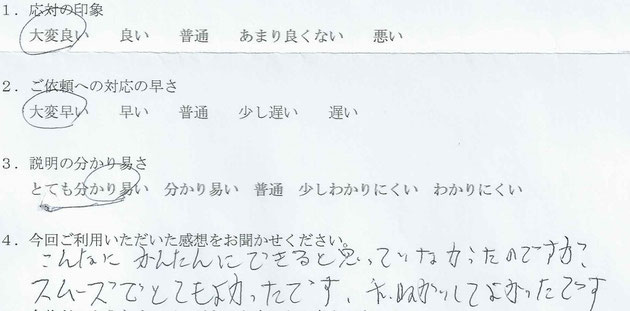 1．応対の印象
大変良い　良い　普通　あまり良くない　悪い
2．ご依頼への対応の早さ
大変早い　早い　普通　少し遅い　遅い
3．説明の分かり易さ
とても分かり易い　分かり易い　普通　少しわかりにくい　わかりにくい
4．今回ご利用いただいた感想をお聞かせください。
こんなに かんたんにできると思っていなかったのですが、
スムーズでとてもよかったです。 してよかったです